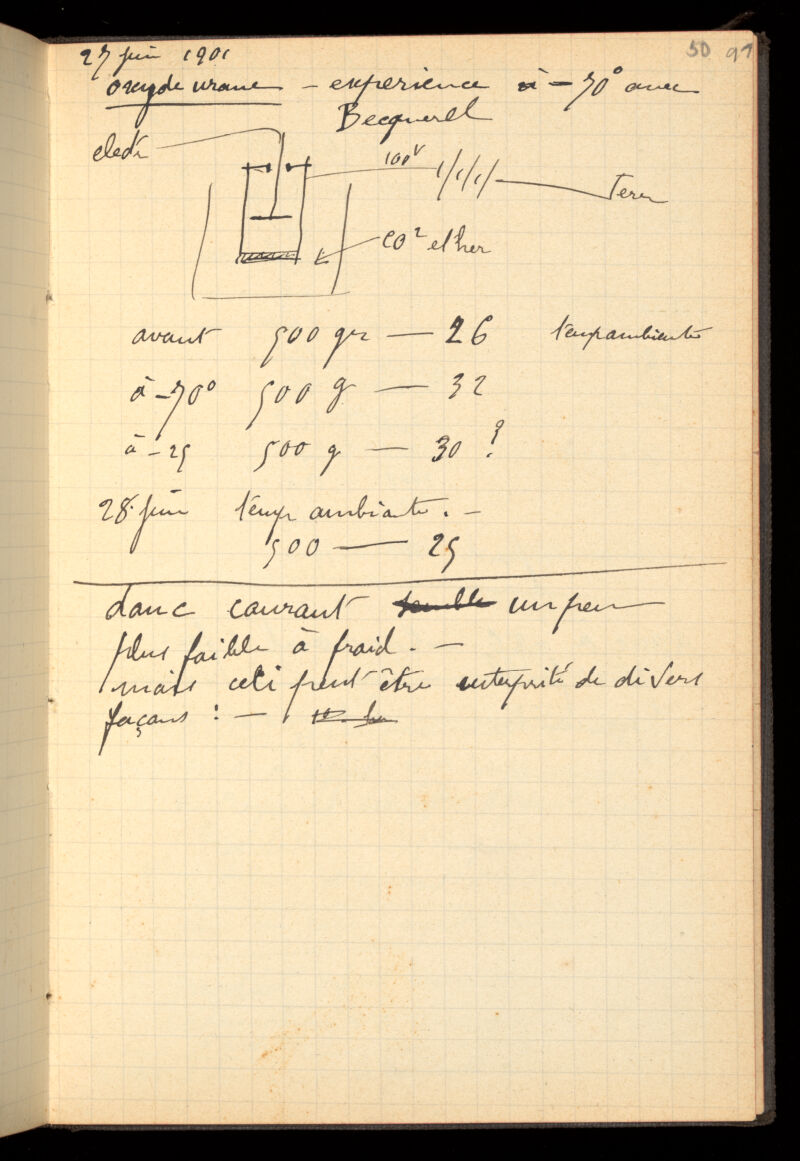 50 97
27 juin 1901
oxyde urane – experience à –70° avec
Becquerel
electr
100V
Terre
CO² ether
avant 500 gr — 26 temp ambiante
à –70° 500 g — 32
à –25 500 g — 30 ?
28 juin temp ambiante. –
500 — 25
donc courant semble un peu
plus faible à froid. –
mais celi peut être interprité de divers
façons : –